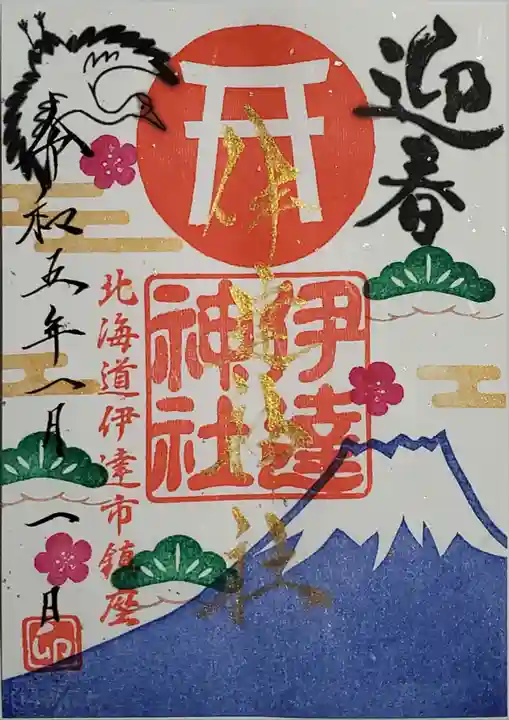 迎春
伊達神社
伊達
神社
北海道伊達市鎮座
令和五年一月一日
卯